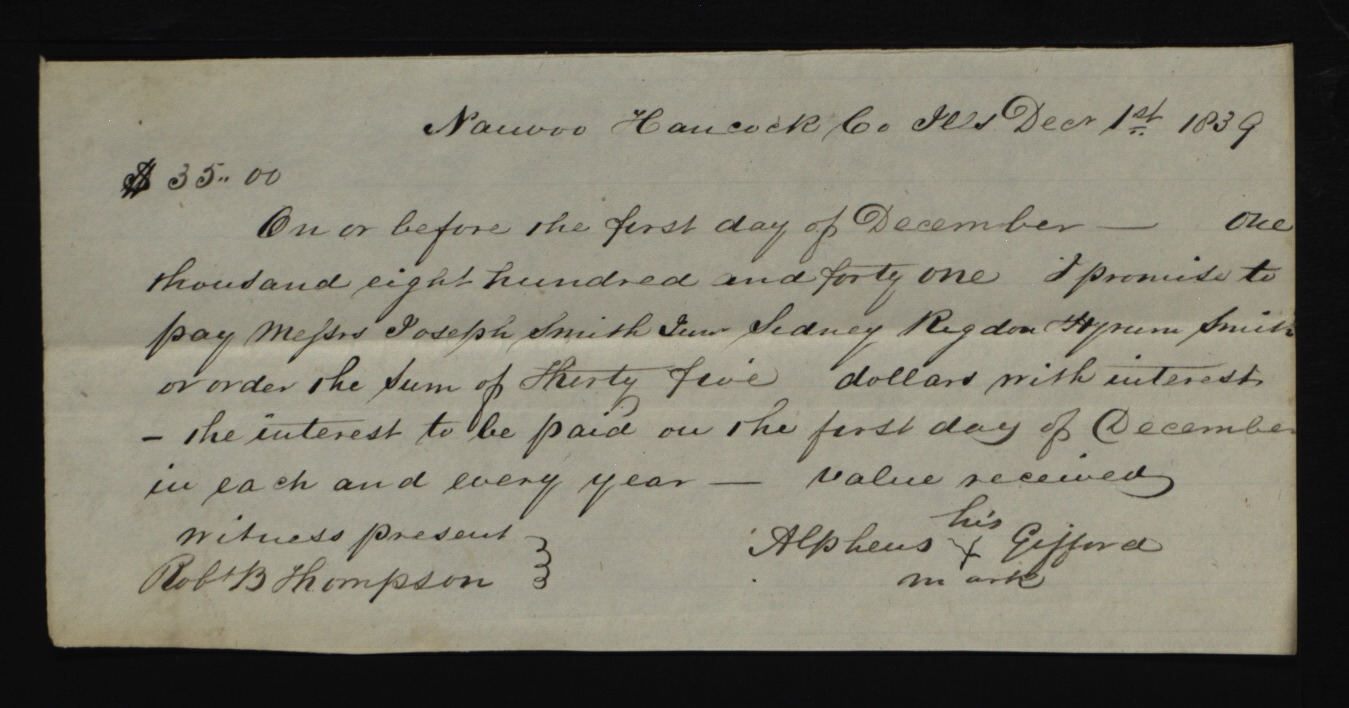 Nauvoo Hancock Co Ills Decr 1st 1839
$ 35.. 00
On or before the first day of December — One
thousand eight hundred and forty one I promise to
pay Messrs Joseph Smith Junr Sidney Rigdon Hyrum Smith
or order the Sum of Thirty five dollars with interest
– the interest to be paid on the first day of December
in each and every year — value received
witness present
Robt B Thompson
his
Alpheus X Gifford
mark